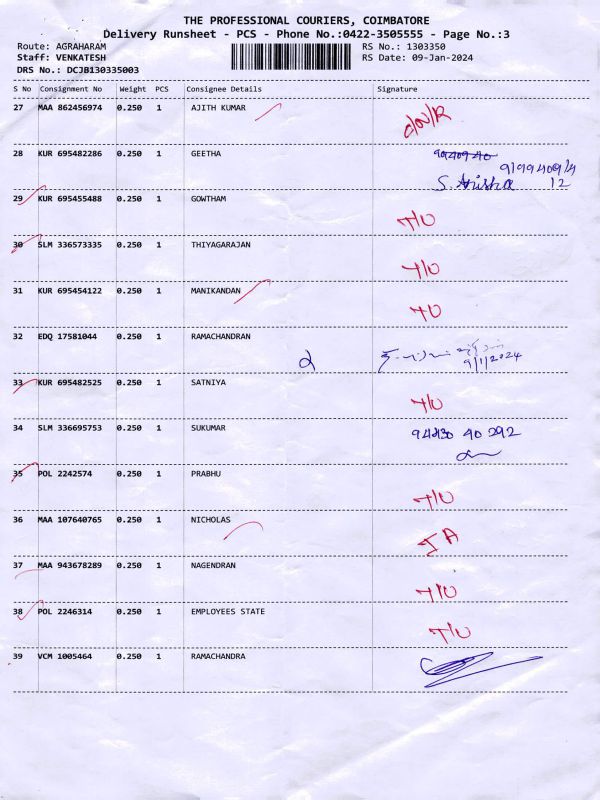 THE PROFESSIONAL COURIERS, COIMBATORE
Delivery Runsheet - PCS - Phone No.:0422-3505555 - Page No.:3
Route: AGRAHARAM RS No.: 1303350
Staff: VENKATESH RS Date: 09-Jan-2024
DRS No.: DCJB130335003
S No Consignment No Weight PCS Consignee Details Signature
27 MAA 862456974 0.250 1 AJITH KUMAR
28 KUR 695482286 0.250 1 GEETHA
12
29 KUR 695455488 0.250 1 GOWTHAM
T/U
30 SLM 336573335 0.250 1 THIYAGARAJAN
T/U
31 KUR 695454122 0.250 1 MANIKANDAN
T/U
32 EDQ 17581044 0.250 1 RAMACHANDRAN
9/1/2024
33 KUR 695482525 0.250 1 SATNIYA
T/U
34 SLM 336695753 0.250 1 SUKUMAR
94430 40 292
35 POL 2242574 0.250 1 PRABHU
T/U
36 MAA 107640765 0.250 1 NICHOLAS
37 MAA 943678289 0.250 1 NAGENDRAN
T/U
38 POL 2246314 0.250 1 EMPLOYEES STATE
T/U
39 VCM 1005464 0.250 1 RAMACHANDRA